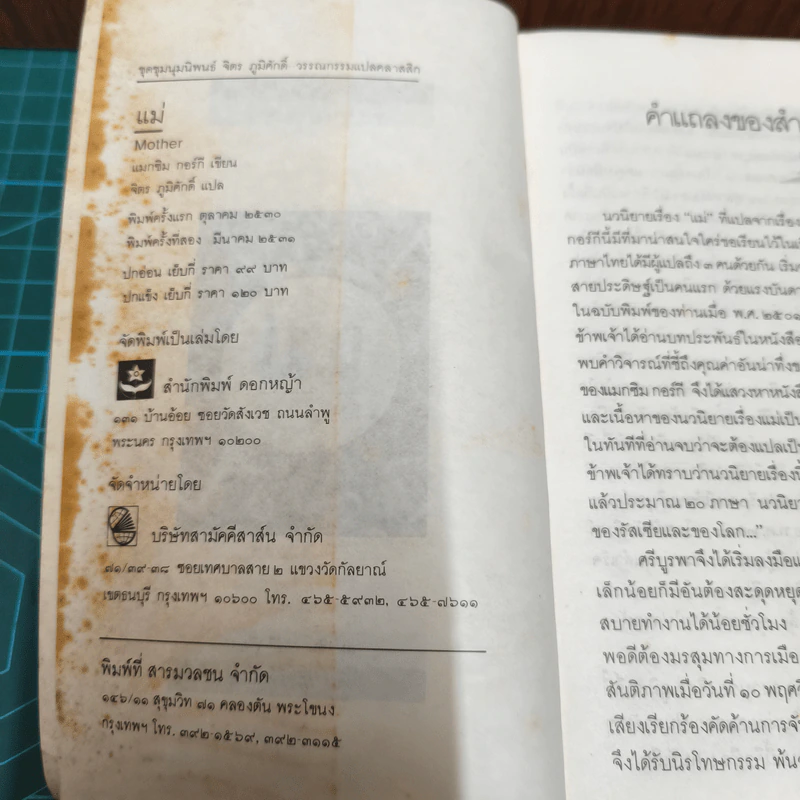 ชุดชุมนุมนิพนธ์ จิตร ภูมิศักดิ์ วรรณกรรมแปลคลาสสิก
แม่
Mother
แมกซิม กอร์กี เขียน
จิตร ภูมิศักดิ์ แปล
พิมพ์ครั้งแรก ตุลาคม ๒๕๓๐
พิมพ์ครั้งที่สอง มีนาคม ๒๕๓๑
ปกอ่อน เย็บกี่ ราคา ๙๙ บาท
ปกแข็ง เย็บกี่ ราคา ๑๒๐ บาท
จัดพิมพ์เป็นเล่มโดย
สำนักพิมพ์ ดอกหญ้า
๑๓๑ บ้านอ้อย ซอยวัดสังเวช ถนนลำพู
พระนคร กรุงเทพฯ ๑๐๒๐๐
จัดจำหน่ายโดย
บริษัทสามัคคีสาส์น จำกัด
๗๑/๓๙-๓๘ ซอยเทศบาลสาย ๒ แขวงวัดกัลยาณ์
เขตธนบุรี กรุงเทพฯ ๑๐๖๐๐ โทร. ๔๖๕-๕๙๓๒, ๔๖๕-๗๖๑๑
พิมพ์ที่ สารมวลชน จำกัด
๑๔๖/๑๑ สุขุมวิท ๗๑ คลองตัน พระโขนง
กรุงเทพฯ โทร. ๓๙๒-๑๕๖๙, ๓๙๒-๓๑๑๕
คำแถลงของสำ
นวนิยายเรื่อง "แม่" ที่แปลจากเรื่อง
กอร์กีนี้มีที่มาน่าสนใจใคร่ขอเรียนไว้ใน
ภาษาไทยได้มีผู้แปลถึง ๓ คนด้วยกัน เริ่ม
สายประดิษฐ์เป็นคนแรก ด้วยแรงบันดา
ในฉบับพิมพ์ของท่านเมื่อ พ.ศ. ๒๕๐๑
ข้าพเจ้าได้อ่านบทประพันธ์ในหนังสือ
พบคำวิจารณ์ที่ชี้ถึงคุณค่าอันน่าทึ่งข
ของแมกซิม กอร์กี จึงได้แสวงหาหนังสื
และเนื้อหาของนวนิยายเรื่องแม่เป็น
ในทันทีที่อ่านจบว่าจะต้องแปลเป็
ข้าพเจ้าได้ทราบว่านวนิยายเรื่องนี้
แล้วประมาณ ๒๐ ภาษา นวนิยา
ของรัสเซียและของโลก..."
ศรีบูรพาจึงได้เริ่มลงมือแ
เล็กน้อยก็มีอันต้องสะดุดหยุด
สบายทำงานได้น้อยชั่วโมง
พอดีต้องมรสุมทางการเมือ
สันติภาพเมื่อวันที่ ๑๐ พฤศจิ
เสียงเรียกร้องคัดค้านการจั
จึงได้รับนิรโทษกรรม พ้น